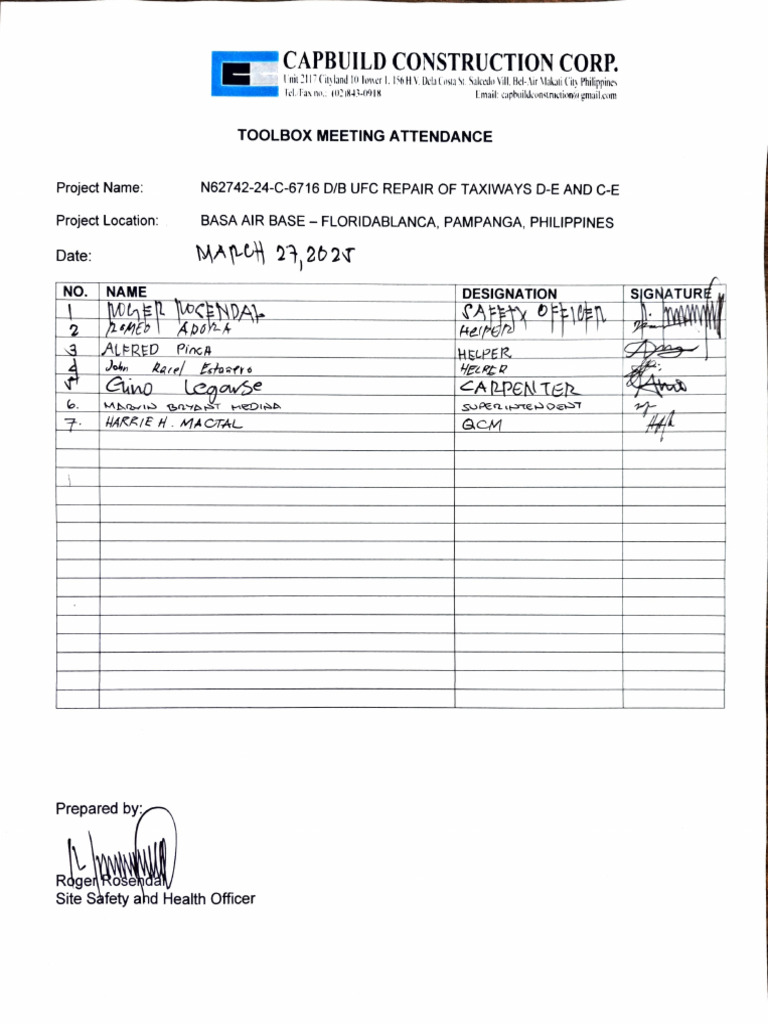 CAPBUILD CONSTRUCTION CORP.
Unit 2117 Cityland 10 Tower 1, 156 H.V. Dela Costa St. Salcedo Vill. Bel-Air Makati City Philippines
Tel./Fax no.: (02)843-0918 Email: capbuildconstruction@gmail.com
TOOLBOX MEETING ATTENDANCE
Project Name: N62742-24-C-6716 D/B UFC REPAIR OF TAXIWAYS D-E AND C-E
Project Location: BASA AIR BASE – FLORIDABLANCA, PAMPANGA, PHILIPPINES
Date: MARCH 27, 2025
NO. NAME DESIGNATION SIGNATURE
1 ROGER ROSENDAL SAFETY OFFICER
2 ROMEO ADORA HELPER
3 ALFRED PINCA HELPER
4 John Racel HELPER
5 Gino Legarse CARPENTER
6. MARVIN BRYANT MEDINA SUPERINTENDENT
7. HARRIE H. MACTAL QCM
Prepared by:
Roger Rosendal
Site Safety and Health Officer